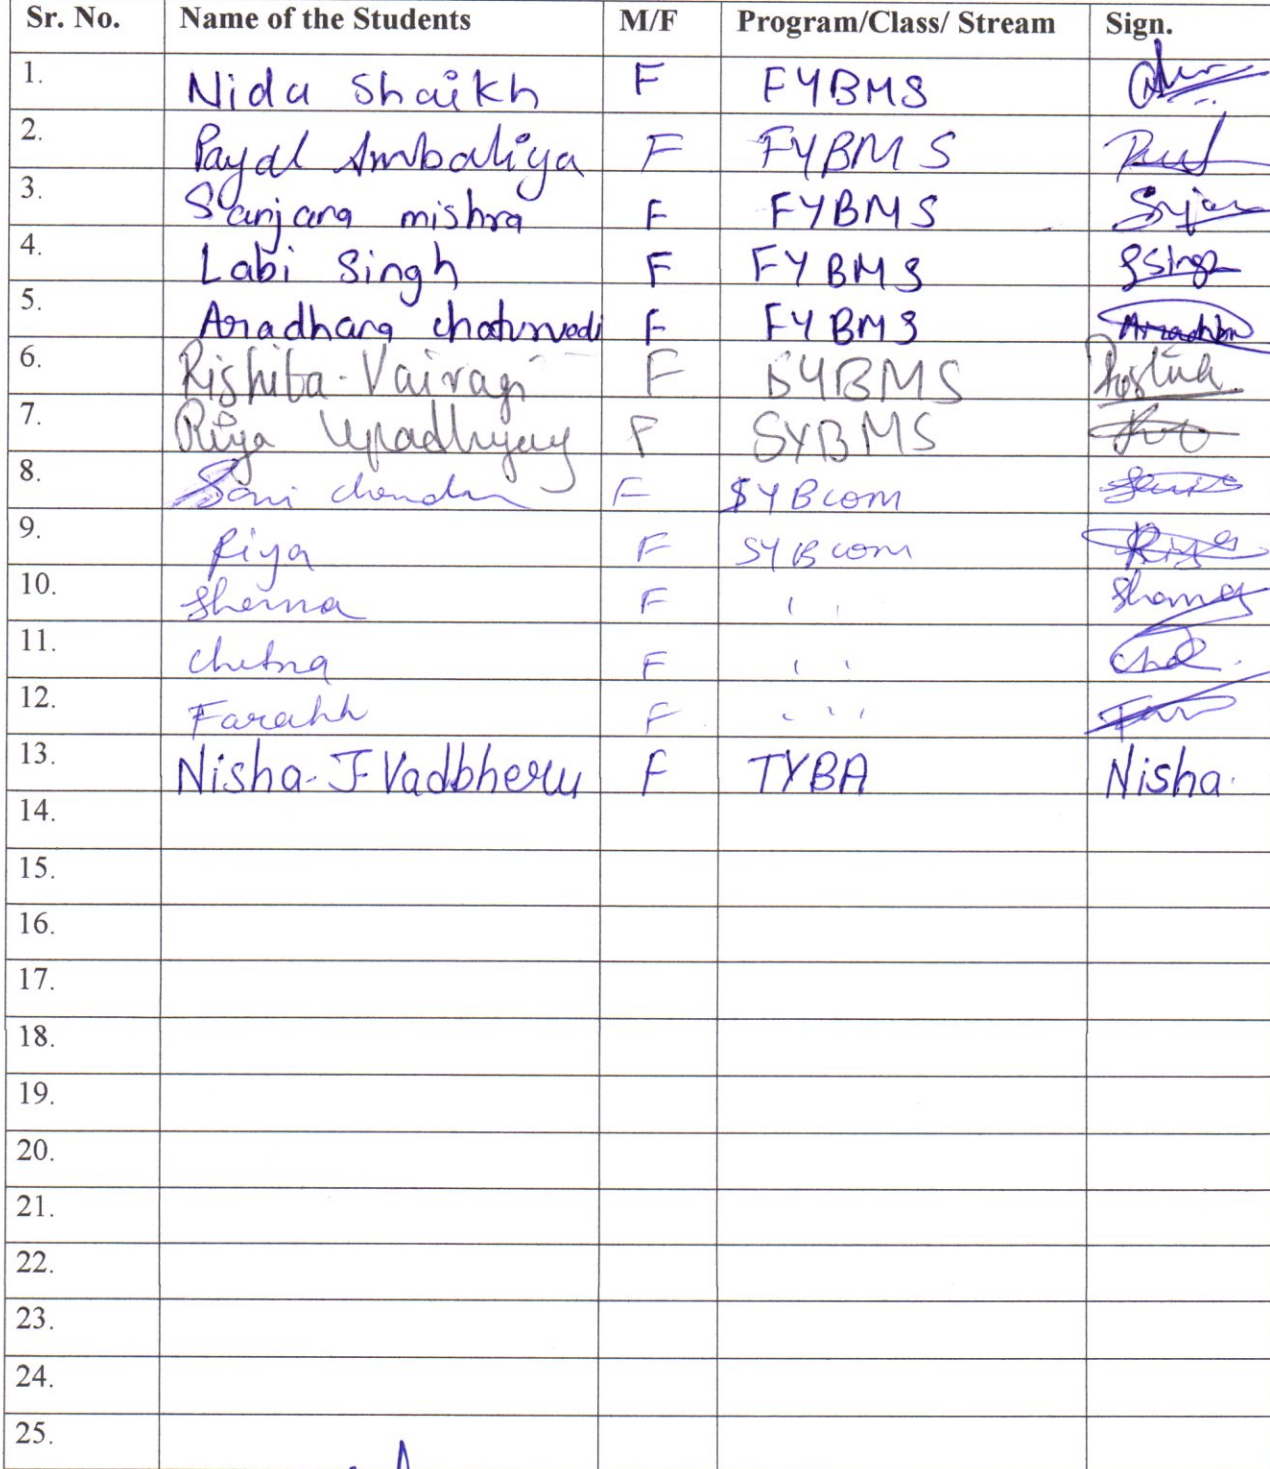 Sr. No. Name of the Students M/F Program/Class/ Stream Sign.
1. Nida Shaikh F FYBMS
2. Payal Ambaliya F FYBMS
3. Sanjana mishra F FYBMS
4. Labi Singh F FYBMS Singh
5. Aradhana chaturvedi F FYBMS Aradhana
6. Rishita-Vairagi F SYBMS
7. Riya Upadhyay F SYBMS
8. Soni F SYBcom
9. Riya F SYBcom Riya
10. F ''
11. Chetna F ''
12. Farahh F '''
13. Nisha-J-Vadbheru F TYBA Nisha.
14.
15.
16.
17.
18.
19.
20.
21.
22.
23.
24.
25.